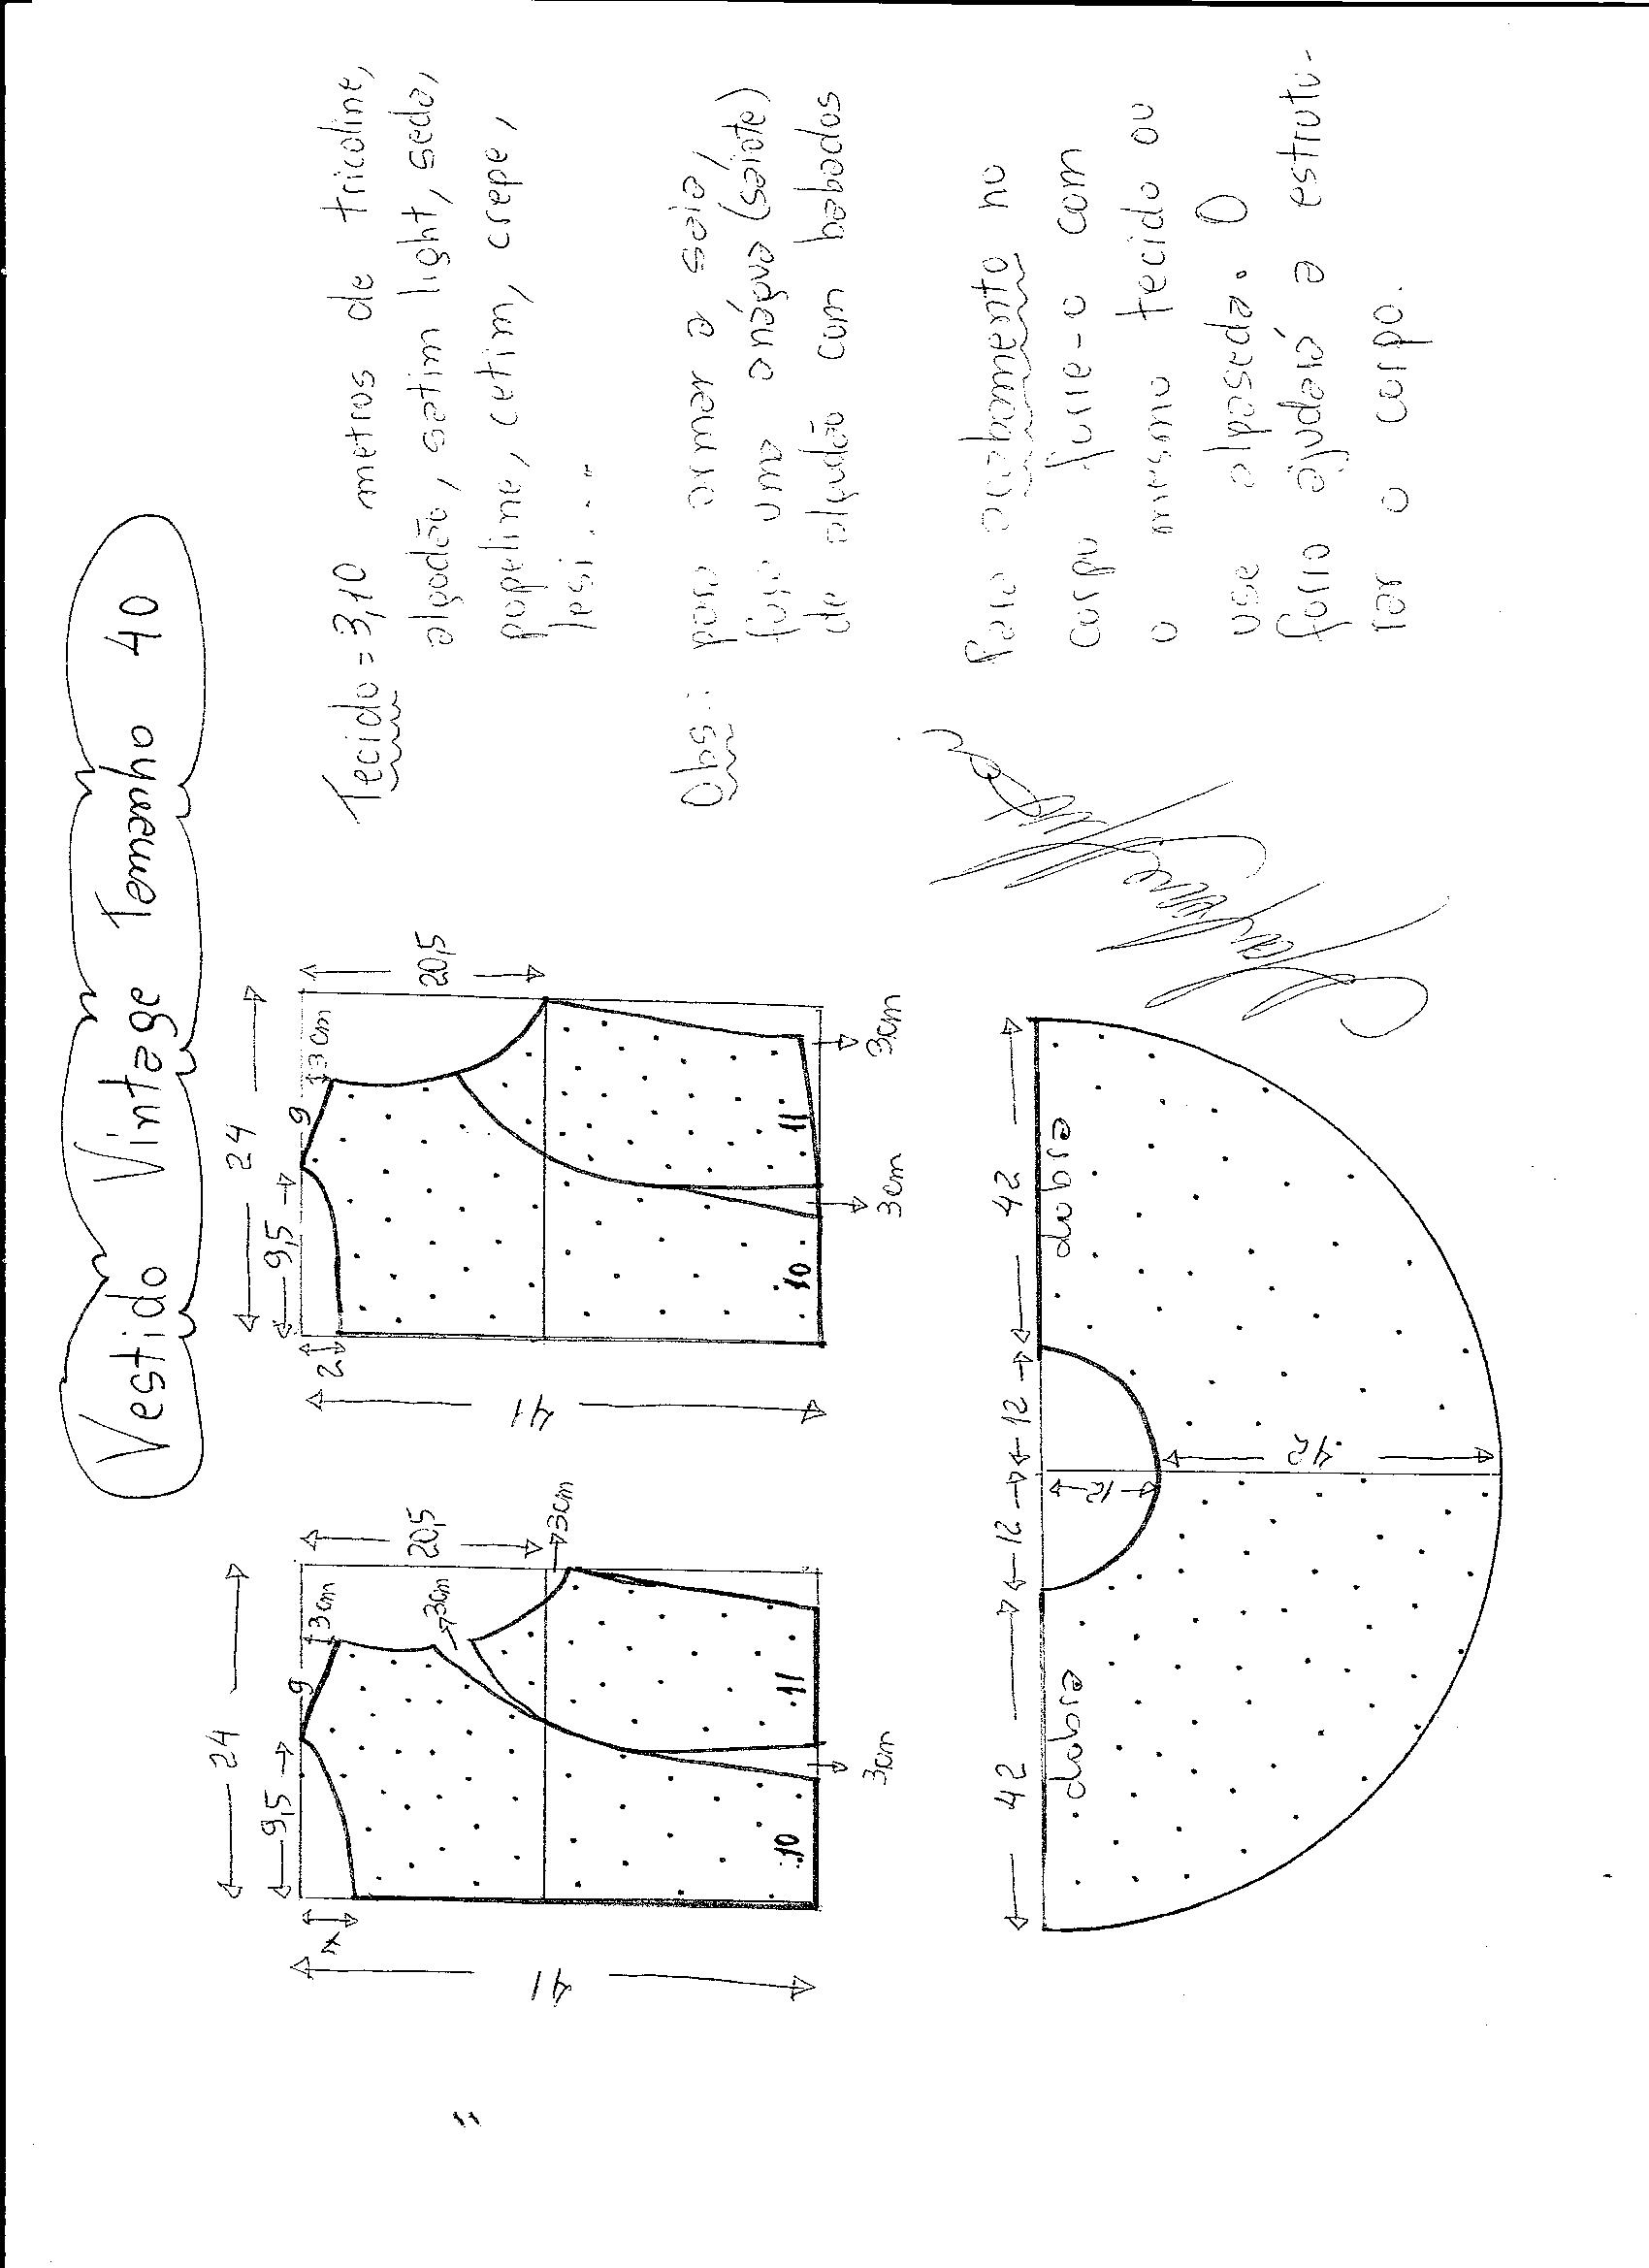 Vestido Vintage Tamanho 40
24
9,5
9
3cm
20,5
3cm
3cm
41
10
11
3cm
24
9,5
9
3cm
20,5
2
41
10
11
3cm
3cm
42
12
12
42
dobra
dobra
12
42
Tecido = 3,10 metros de tricoline,
algodão, satim light, seda,
popeline, cetim, crepe,
lesi....
Obs.: para armar a saia,
faça uma anágua (saiote)
de algudão com babados
Para acabamento no
corpo forre-o com
o mesmo tecido ou
use alpaseda. O
forro ajudará a estrutu-
rar o corpo.
Marlene